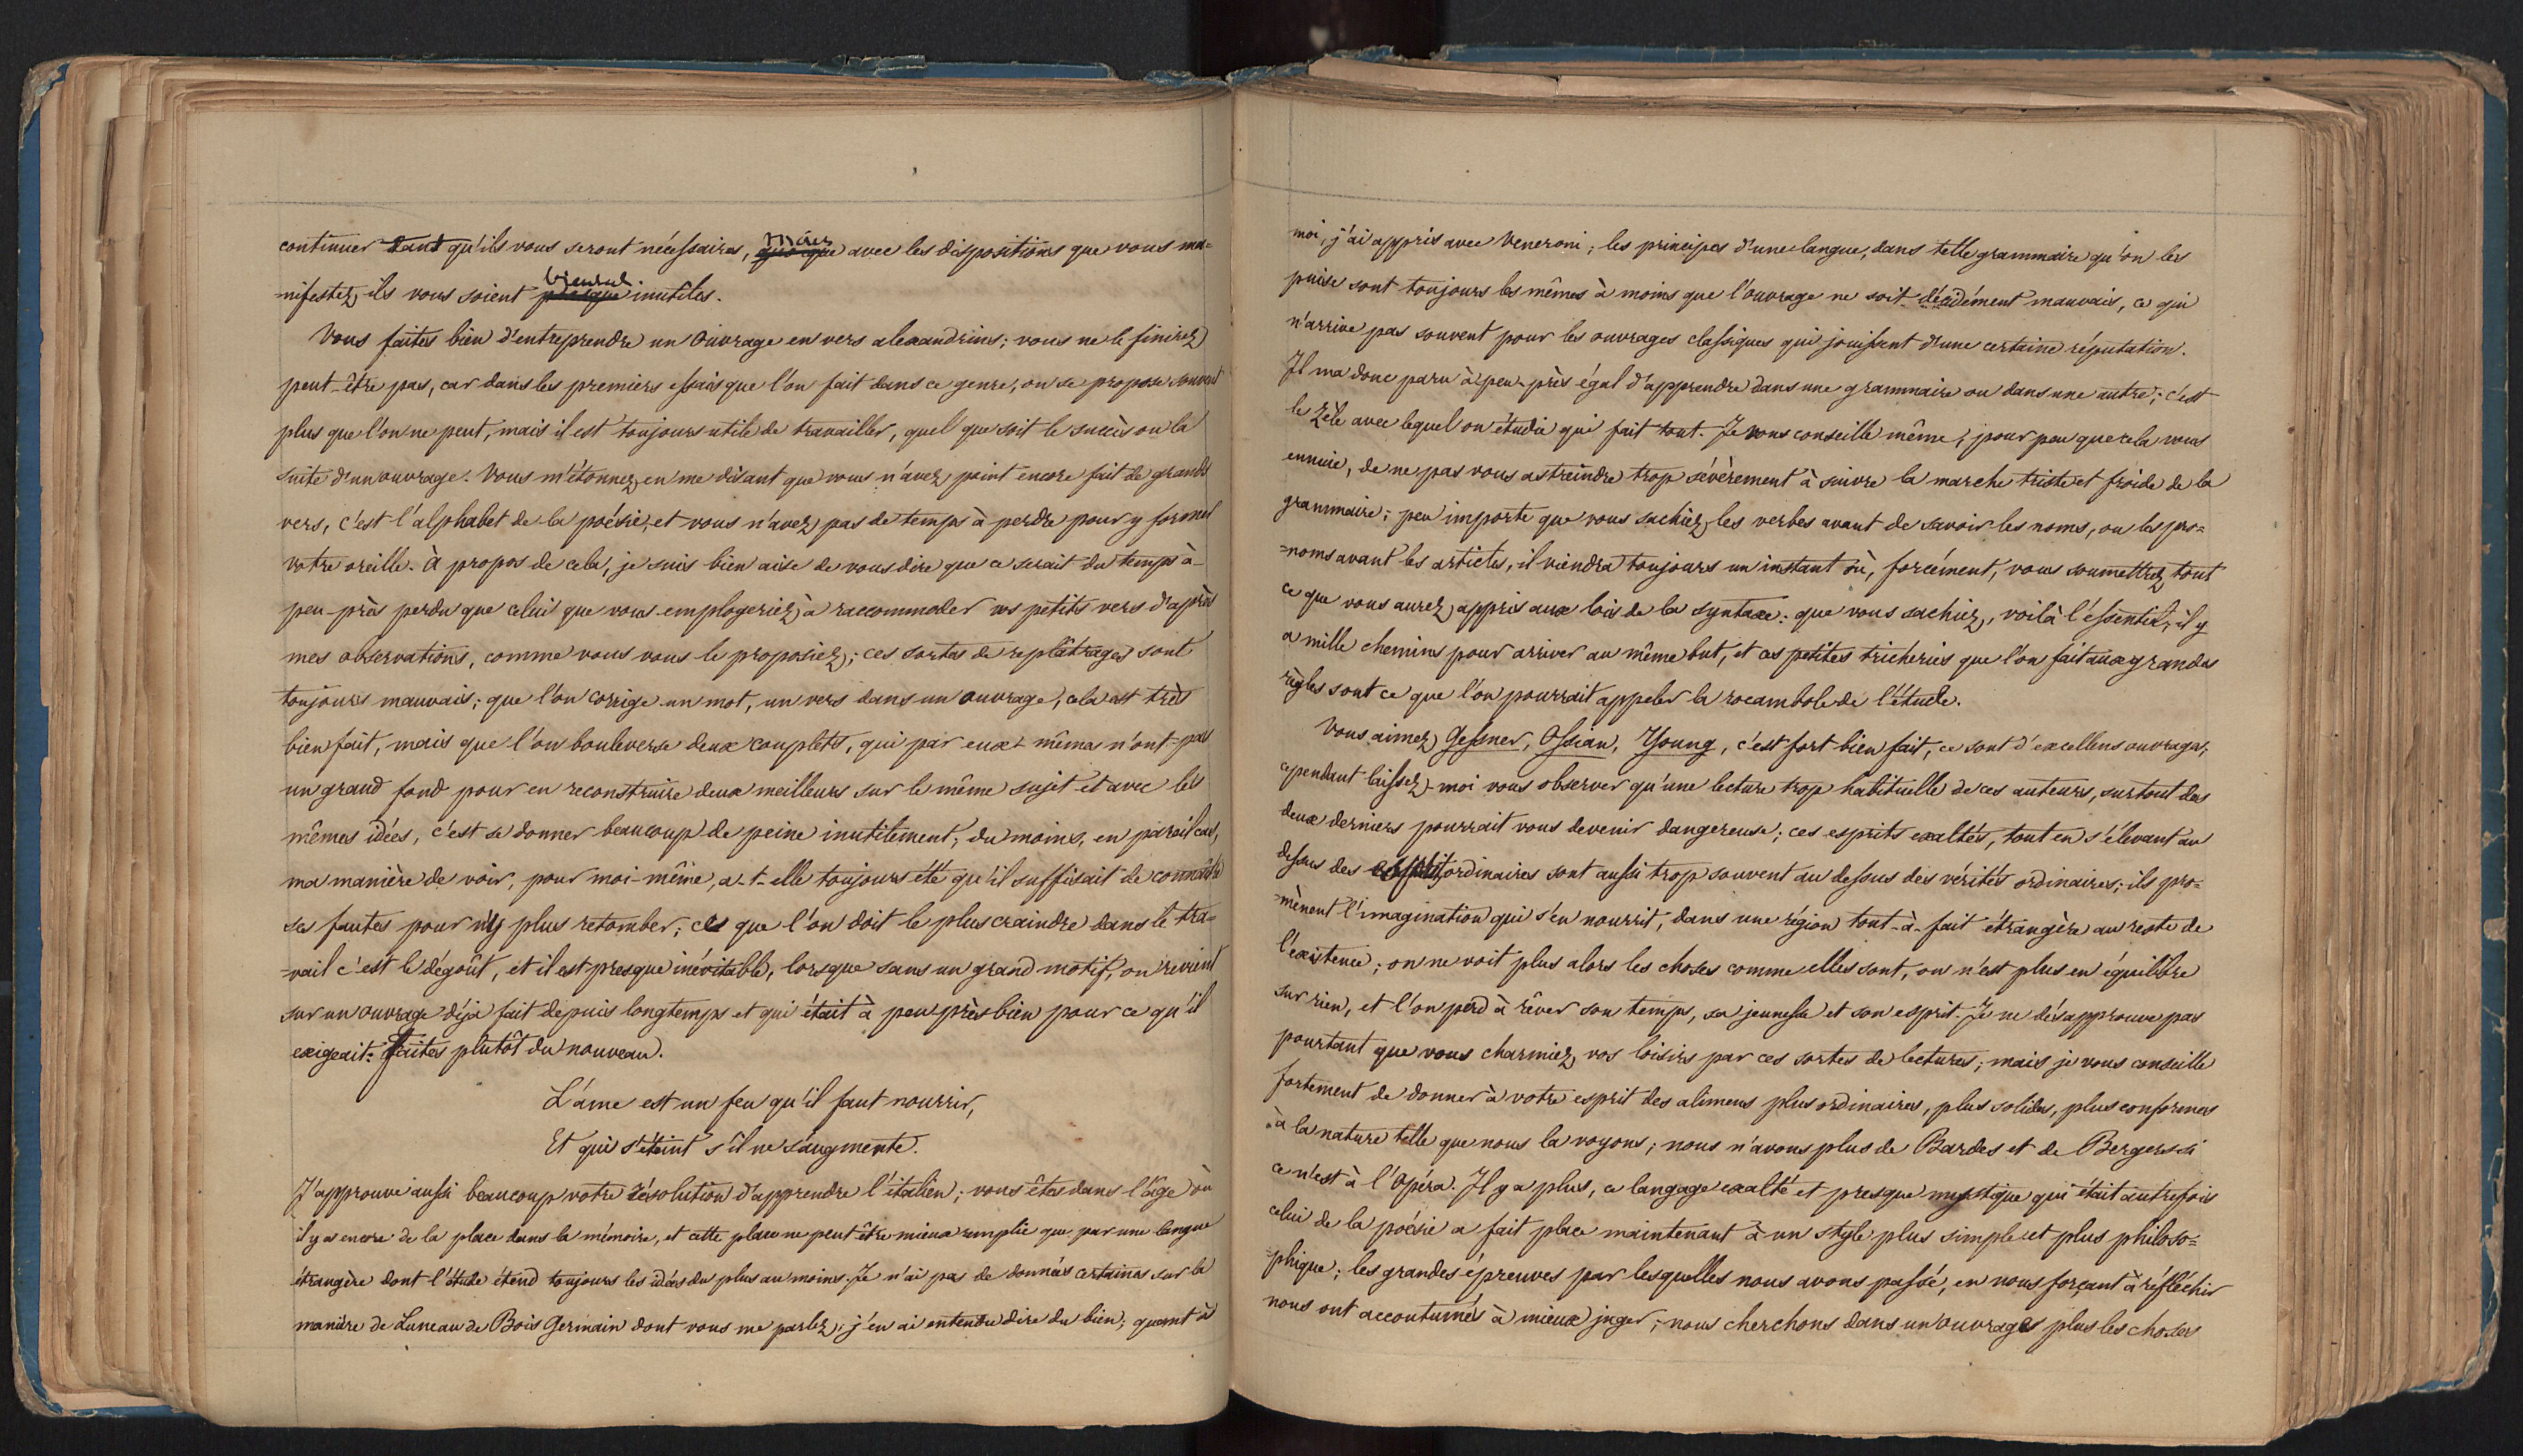 continuer tant qu'ils vous seront nécessaires, quoique avec les dispositions que vous ma=
=nifestez, ils vous soient bientôt presque inutiles.
Vous faites bien d'entreprendre un ouvrage en vers alexandrins; vous ne le finirez
peut-être pas, car dans les premiers essais que l'on fait dans ce genre, on se propose souvent
plus que l'on ne peut, mais il est toujours utile de travailler, quel que soit le succès ou la
suite d'un ouvrage. Vous m'étonnez en me disant que vous n'avez point encore fait de grands
vers, c'est l'alphabet de la poésie, et vous n'avez pas de temps à perdre pour y former
votre oreille. À propos de cela, je suis bien aise de vous dire que ce serait du temps à-
peu-près perdu que celui que vous employeriez à raccommoder vos petits vers d'après
mes observations, comme vous vous le proposiez; ces sortes de replâtrages sont
toujours mauvais; que l'on corrige un mot, un vers dans un ouvrage, cela est très
bien fait, mais que l'on bouleverse deux couplets, qui par eux-mêmes n'ont pas
un grand fond pour en reconstruire deux meilleurs sur le même sujet et avec les
mêmes idées, c'est se donner beaucoup de peine inutilement; du moins, en pareil cas,
ma manière de voir, pour moi-même, a-t-elle toujours été qu'il suffisait de connaître
ses fautes pour n'y plus retomber; ce que l'on doit le plus craindre dans le tra=
=vail c'est le dégoût, et il est presque inévitable, lorsque sans un grand motif, on revient
sur un ouvrage déjà fait depuis longtemps et qui était à peu près bien pour ce qu'il
exigeait: Faites plutôt du nouveau.
L'âme est un feu qu'il faut nourrir,
Et qui s'éteint s'il ne s'augmente.
J'approuve aussi beaucoup votre résolution d'apprendre l'italien; vous êtes dans l'âge où
il y a encore de la place dans la mémoire, et cette place ne peut être mieux remplie que par une langue
étrangère dont l'étude étend toujours les idées du plus au moins. Je n'ai pas de données certaines sur la
manière de Luneau de Bois Germain dont vous me parlez; j'en ai entendu dire du bien; quant à
moi, j'ai appris avec Veneroni; les principes d'une langue, dans telle grammaire qu'on les
puise sont toujours les mêmes à moins que l'ouvrage ne soit décidément mauvais, ce qui
n'arrive pas souvent pour les ouvrages classiques qui jouissent d'une certaine réputation.
Il ma donc paru à-peu-près égal d'apprendre dans une grammaire ou dans une autre; c'est
le zèle avec lequel on étudie qui fait tout. Je vous conseille même, pour peu que cela vous
ennuie, de ne pas vous astreindre trop sévèrement à suivre la marche triste et froide de la
grammaire; peu importe que vous sachiez les verbes avant de savoir les noms, ou les pro=
=noms avant les articles, il viendra toujours un instant où, forcément, vous soumettrez tout
ce que vous aurez appris aux lois de la syntaxe: que vous sachiez, voilà l'essentiel, il y
a mille chemins pour arriver au même but, et ces petites tricheries que l'on fait aux grandes
règles sont ce que l'on pourrait appeler la rocambole de l'étude.
Vous aimez Gessner, Ossian, Young, c'est fort bien fait, ce sont d'excellens ouvrages;
cependant laissez-moi vous observer qu'une lecture trop habituelle de ces auteurs, surtout des
deux derniers pourrait vous devenir dangereuse; ces esprits exaltés, tout en s'élevant au
dessus des esprits ordinaires sont aussi trop souvent au dessus des vérités ordinaires; ils pro=
=mènent l'imagination qui s'en nourrit, dans une région tout-à-fait étrangère au reste de
l'existence; on ne voit plus alors les choses comme elles sont, on n'est plus en équilibre
sur rien, et l'on perd à rêver son temps, sa jeunesse et son esprit. Je ne désapprouve pas
pourtant que vous charmiez vos loisirs par ces sortes de lectures; mais je vous conseille
fortement de donner à votre esprit des alimens plus ordinaires, plus solides, plus conformes
à la nature telle que nous la voyons; nous n'avons plus de Bardes et de Bergers si
ce n'est à l'Opéra. Il y a plus, ce langage exalté et presque mystique qui était autrefois
celui de la poésie a fait place maintenant à un style plus simple et plus philoso=
=phique; les grandes épreuves par lesquelles nous avons passé, en nous forçant à réfléchir
nous ont accoutumés à mieux juger; nous cherchons dans un ouvrage plus les choses